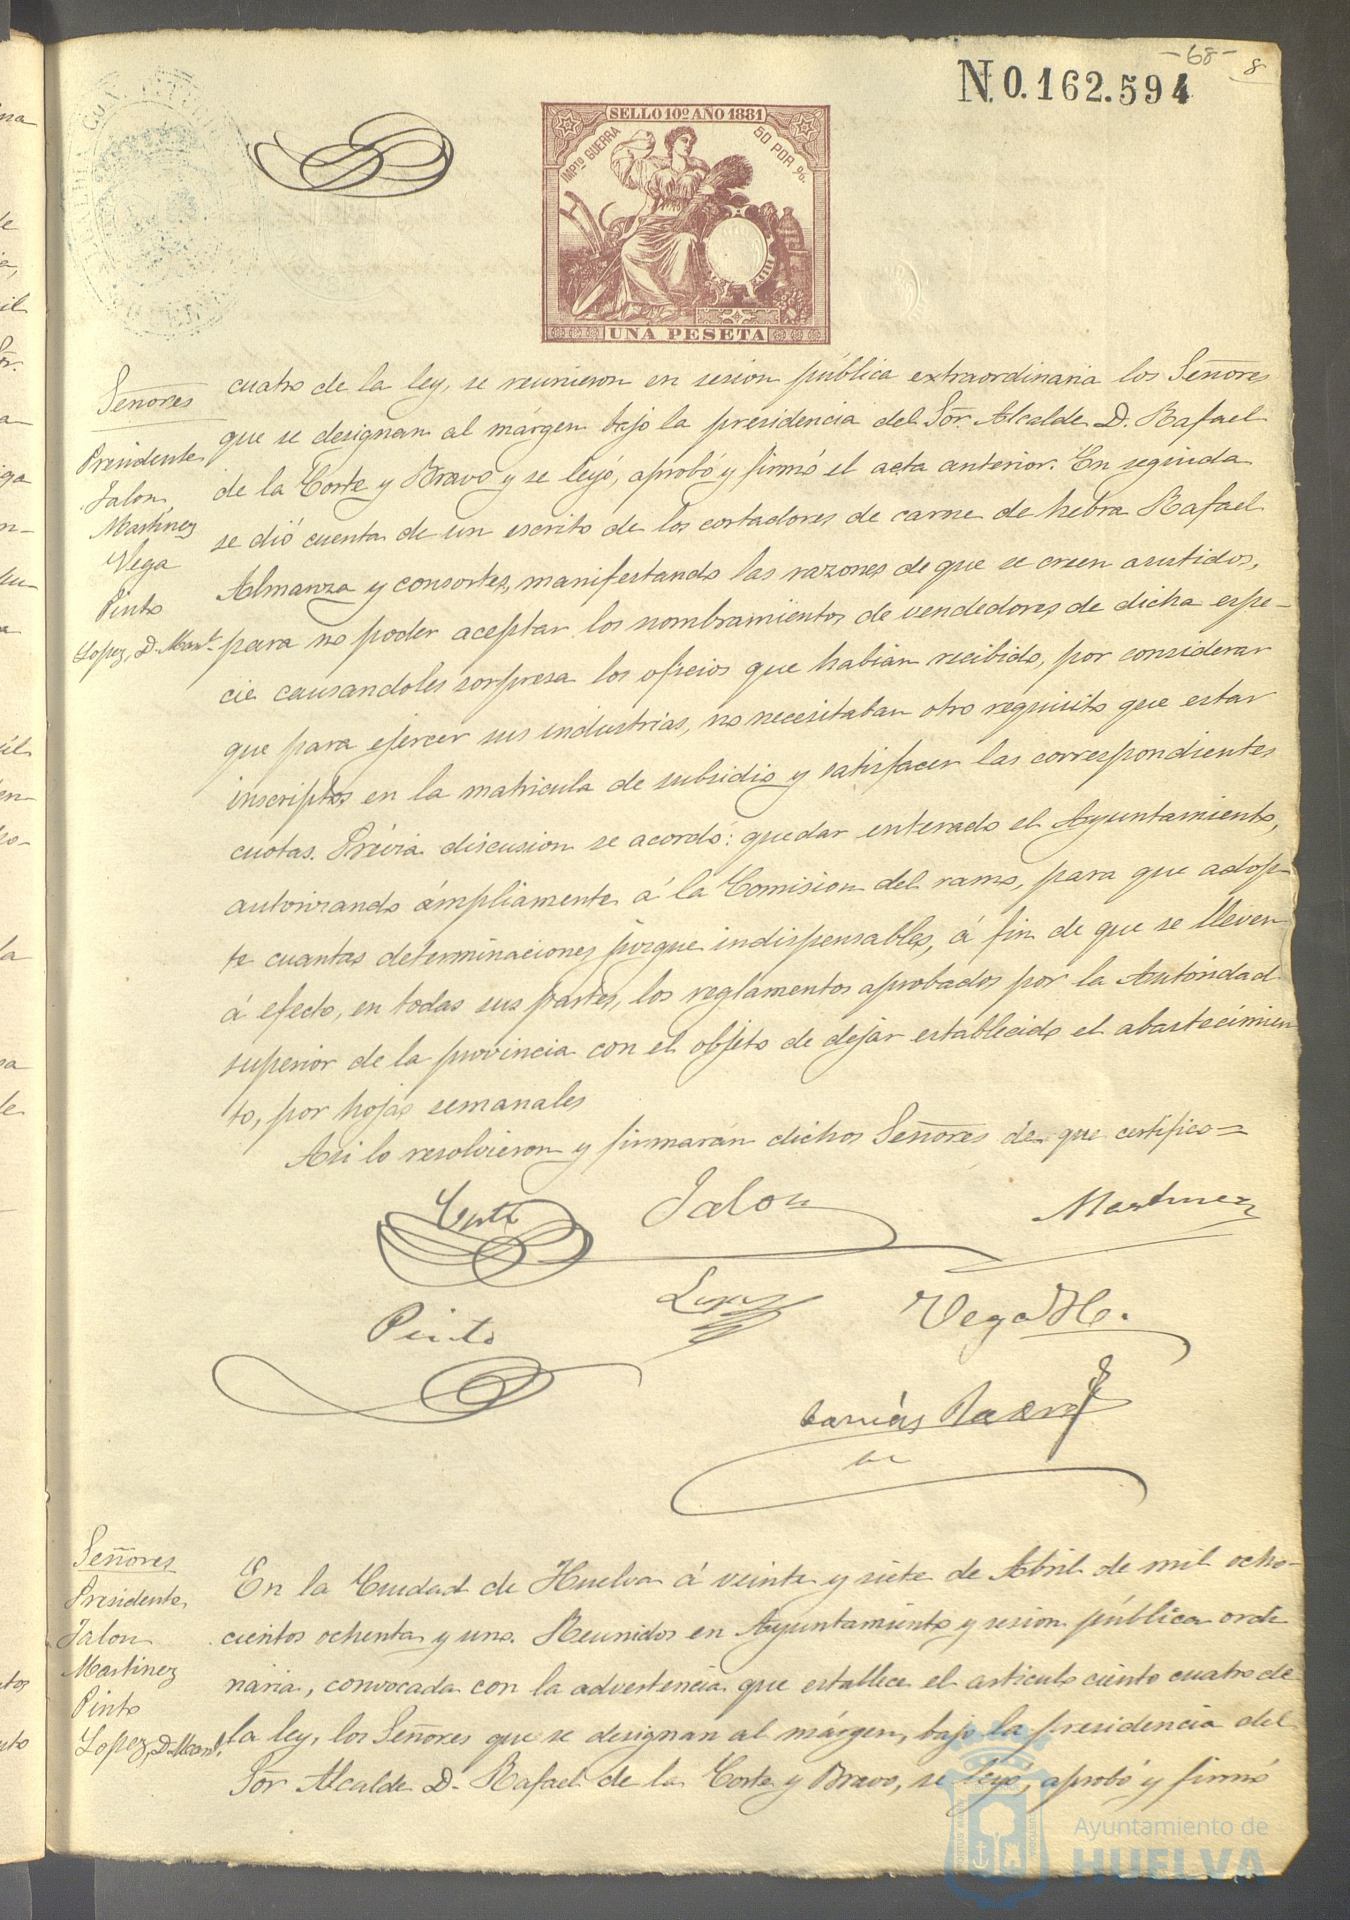 -68-
8
N. 0.162.594
SELLO 10º AÑO 1881
IMPTO GUERRA
50 POR %.
UNA PESETA
Señores
Presidente
Jalon
Martinez
Vega
Pinto
Lopez, D. Man.l
cuatro de la ley, se reunieron en sesion pública extraordinaria los Señores
que se designan al márgen bajo la presidencia del Sor. Alcalde D. Rafael
de la Corte y Bravo y se leyó, aprobó y firmó el acta anterior. En seguida
se dió cuenta de un escrito de los cortadores de carne de hebra Rafael
Almanza y consortes, manifestando las razones de que se creen asistidos,
para no poder aceptar los nombramientos de vendedores de dicha espe-
cie causandoles sorpresa los oficios que habian recibido, por considerar
que para ejercer sus industrias, no necesitaban otro requisito que estar
inscriptos en la matricula de subsidio y satisfacer las correspondientes
cuotas. Prévia discusion se acordó: quedar enterado el Ayuntamiento,
autorizando ámpliamente á la Comision del ramo, para que adop-
te cuantas determinaciones juzgue indispensables, á fin de que se lleven
á efecto, en todas sus partes, los reglamentos aprobados por la Autoridad
superior de la provincia con el objeto de dejar establecido el abastecimien
to, por hojas semanales
Asi lo resolvieron y firmarán dichos Señores de que certifico=
Corte
Jalon
Martinez
Pinto
Lopez
Vega H.
Señores
Presidente
Jalon
Martinez
Pinto
Lopez, D. Man.l
En la Ciudad de Huelva á veinte y siete de Abril de mil ocho-
cientos ochenta y uno. Reunidos en Ayuntamiento y sesion pública ordi
naria, convocada con la advertencia que establece el articulo ciento cuatro de
la ley, los Señores que se designan al márgen, bajo la presidencia del
Sor Alcalde D. Rafael de la Corte y Bravo, se leyó, aprobó y firmó
Ayuntamiento de
HUELVA